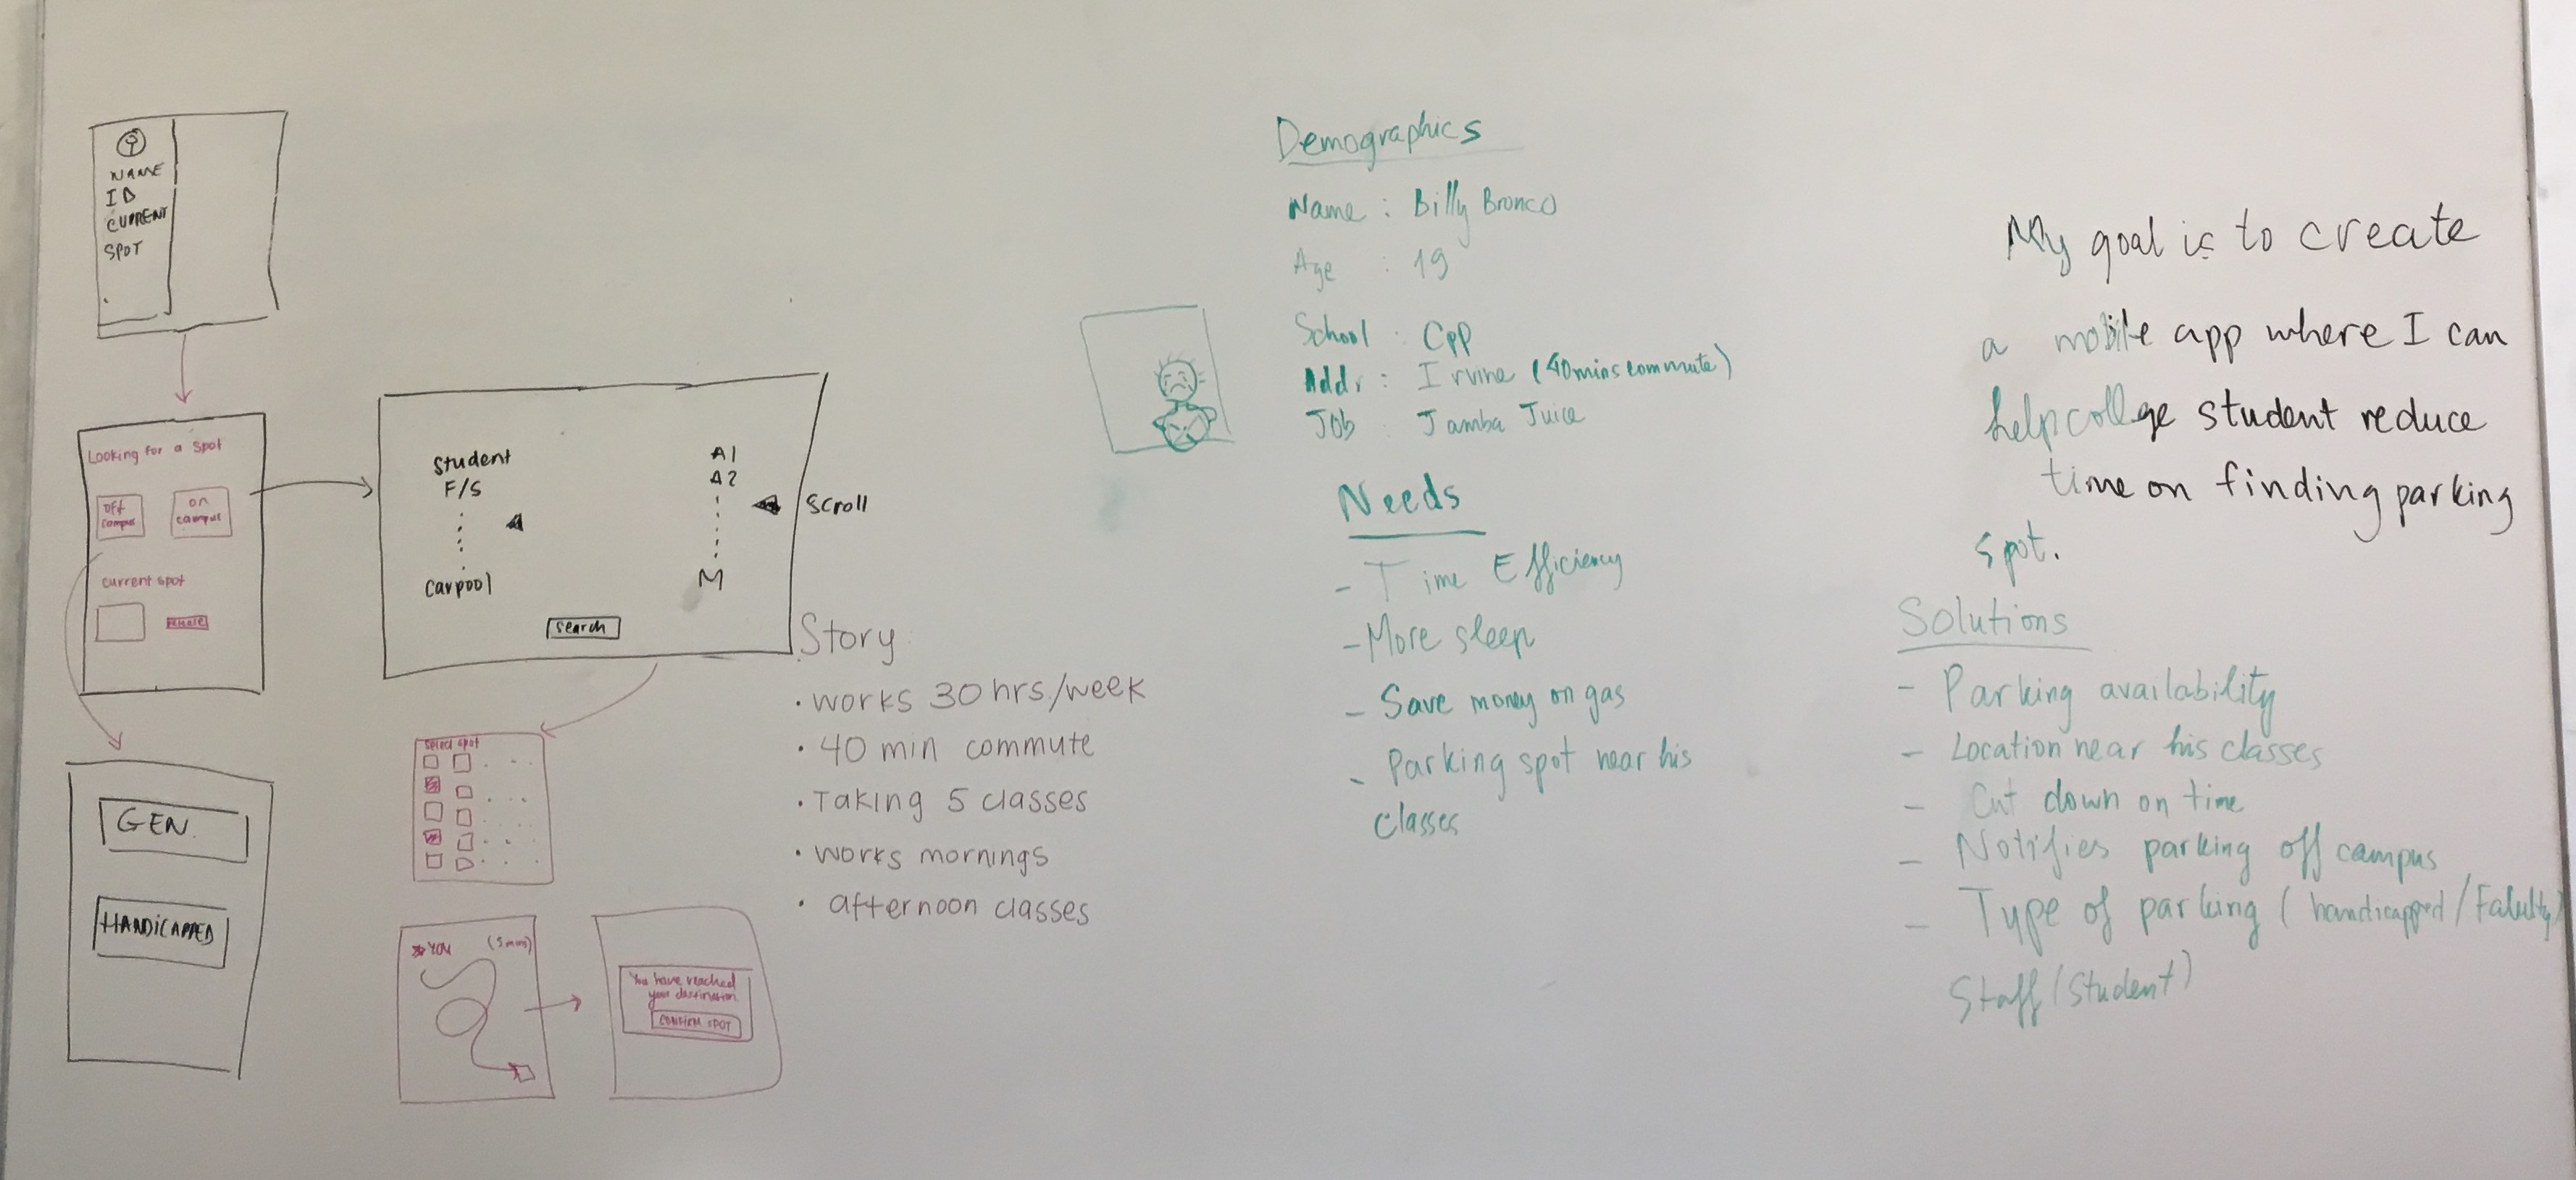 NAME
ID
CURRENT
SPOT
Looking for a Spot
Off
campus
on
campus
current spot
Student
F/S
Carpool
A1
A2
M
scroll
Search
GEN.
HANDICAPPED
Select spot
YOU
(5 mins)
You have reached
your destination
CONFIRM SPOT
Story
• works 30 hrs/week
• 40 min commute
• Taking 5 classes
• works mornings
• afternoon classes
Demographics
Name : Billy Bronco
Age : 19
School : Cpp
Addr : Irvine (40mins commute)
Job : Jamba Juice
Needs
- Time Efficiency
- More sleep
- Save money on gas
- Parking spot near his
classes
My goal is to create
a mobile app where I can
help college student reduce
time on finding parking
spot.
Solutions
- Parking availability
- Location near his classes
- Cut down on time
- Notifies parking off campus
- Type of parking (handicapped/Falulty/
Staff/Student)